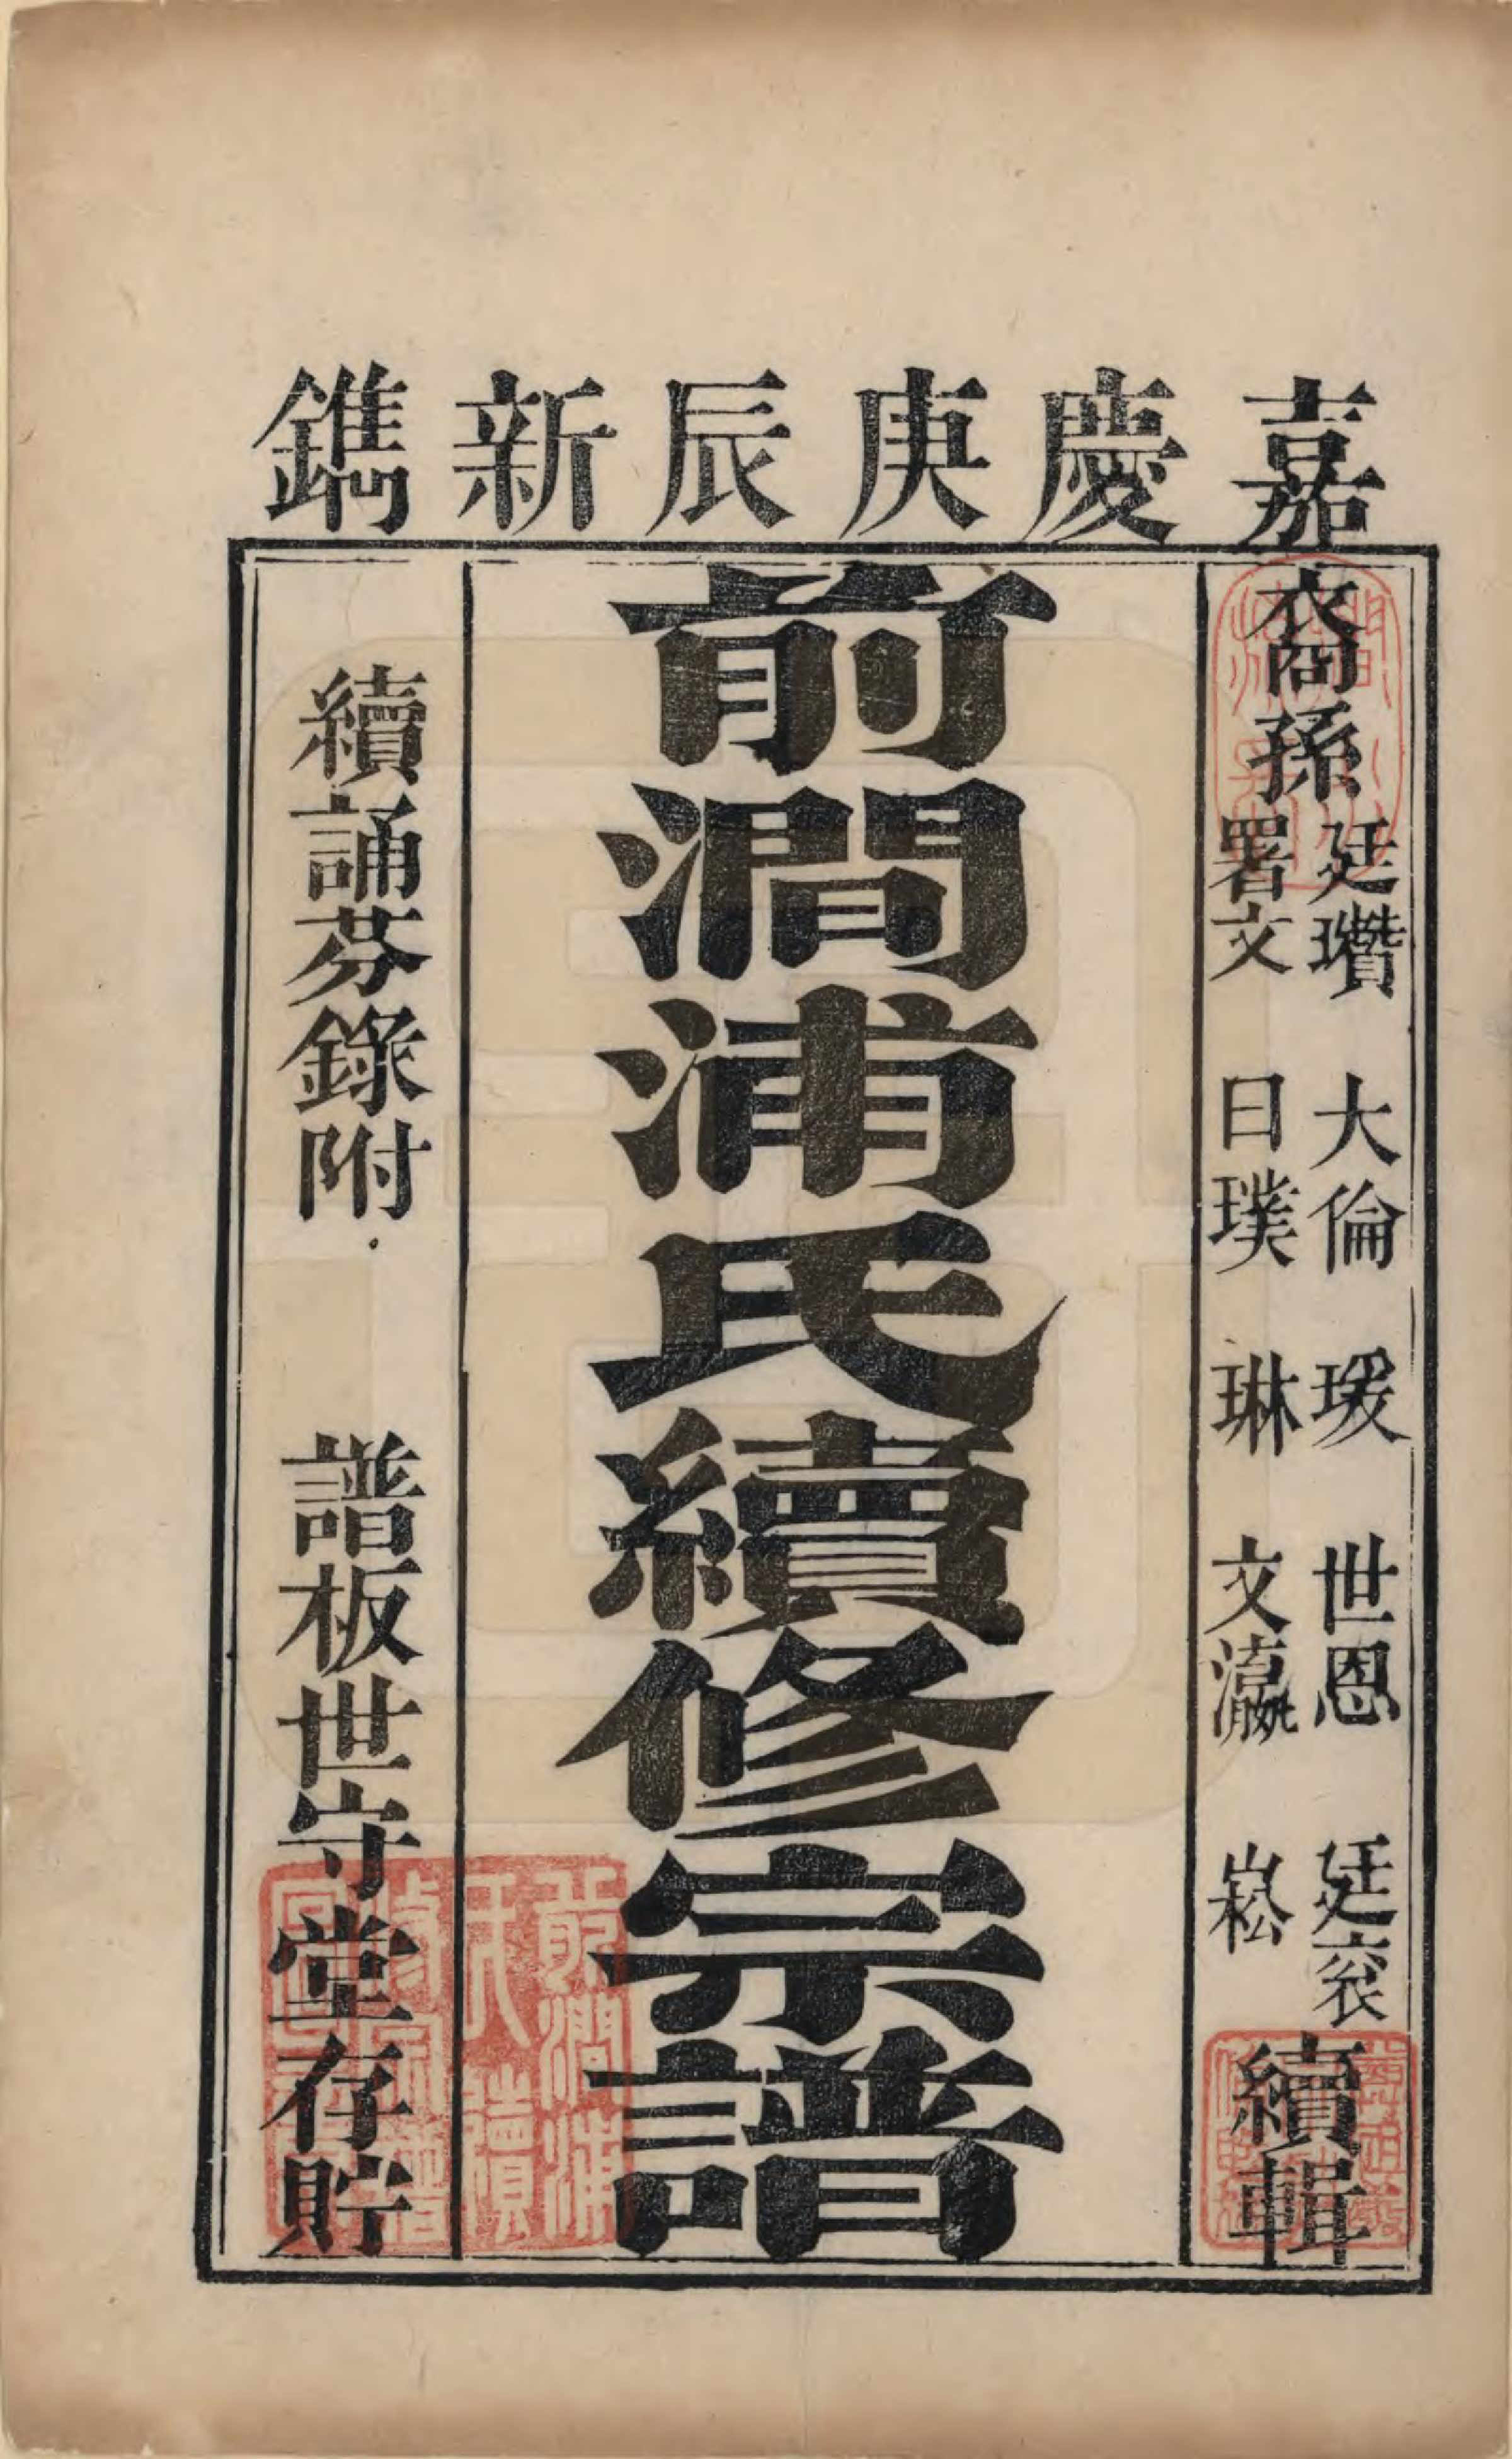 嘉慶庚辰新鐫
裔孫
廷瓚 大倫 瑗 世恩 廷衮
署文 日璞 琳 文瀛 崧
續輯
前澗浦氏續修宗譜
續誦芬錄附
譜板世守堂存貯